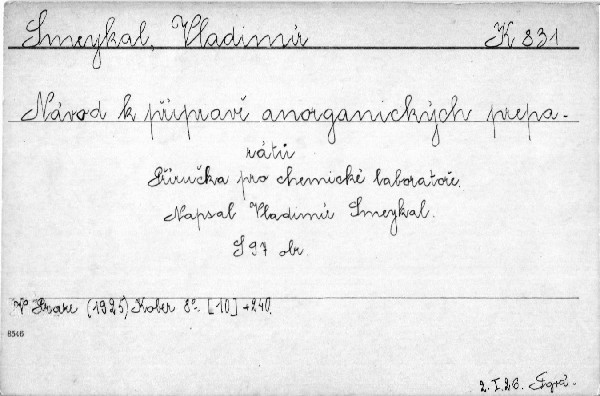 Smeykal, Vladimír K 831
Návod k přípravě anorganických prepa-
rátů
Příručka pro chemické laboratoře.
Napsal Vladimír Smeykal.
S 97 obr.
V Praze (1925) Kober 8°. [10]+240.
8546
2.I.26.